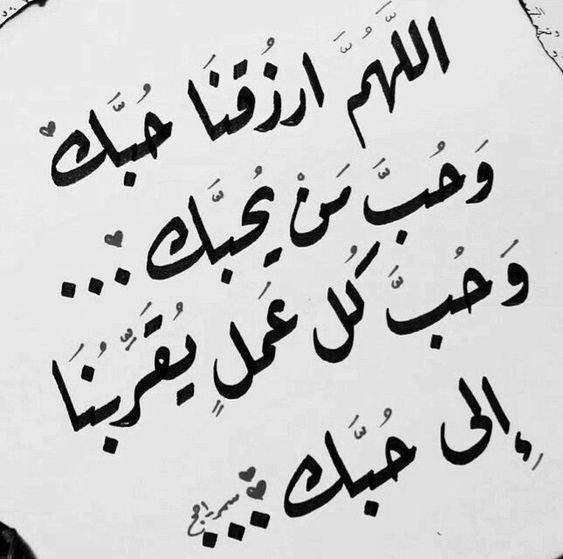 اللَّهُمَّ ارزُقنَا حُبَّك
وَحُبَّ مَنْ يُحبَّك...
وَحُبَّ كُل عَمَلٍ يُقَرِّبُنَا
إِلى حُبَّك...